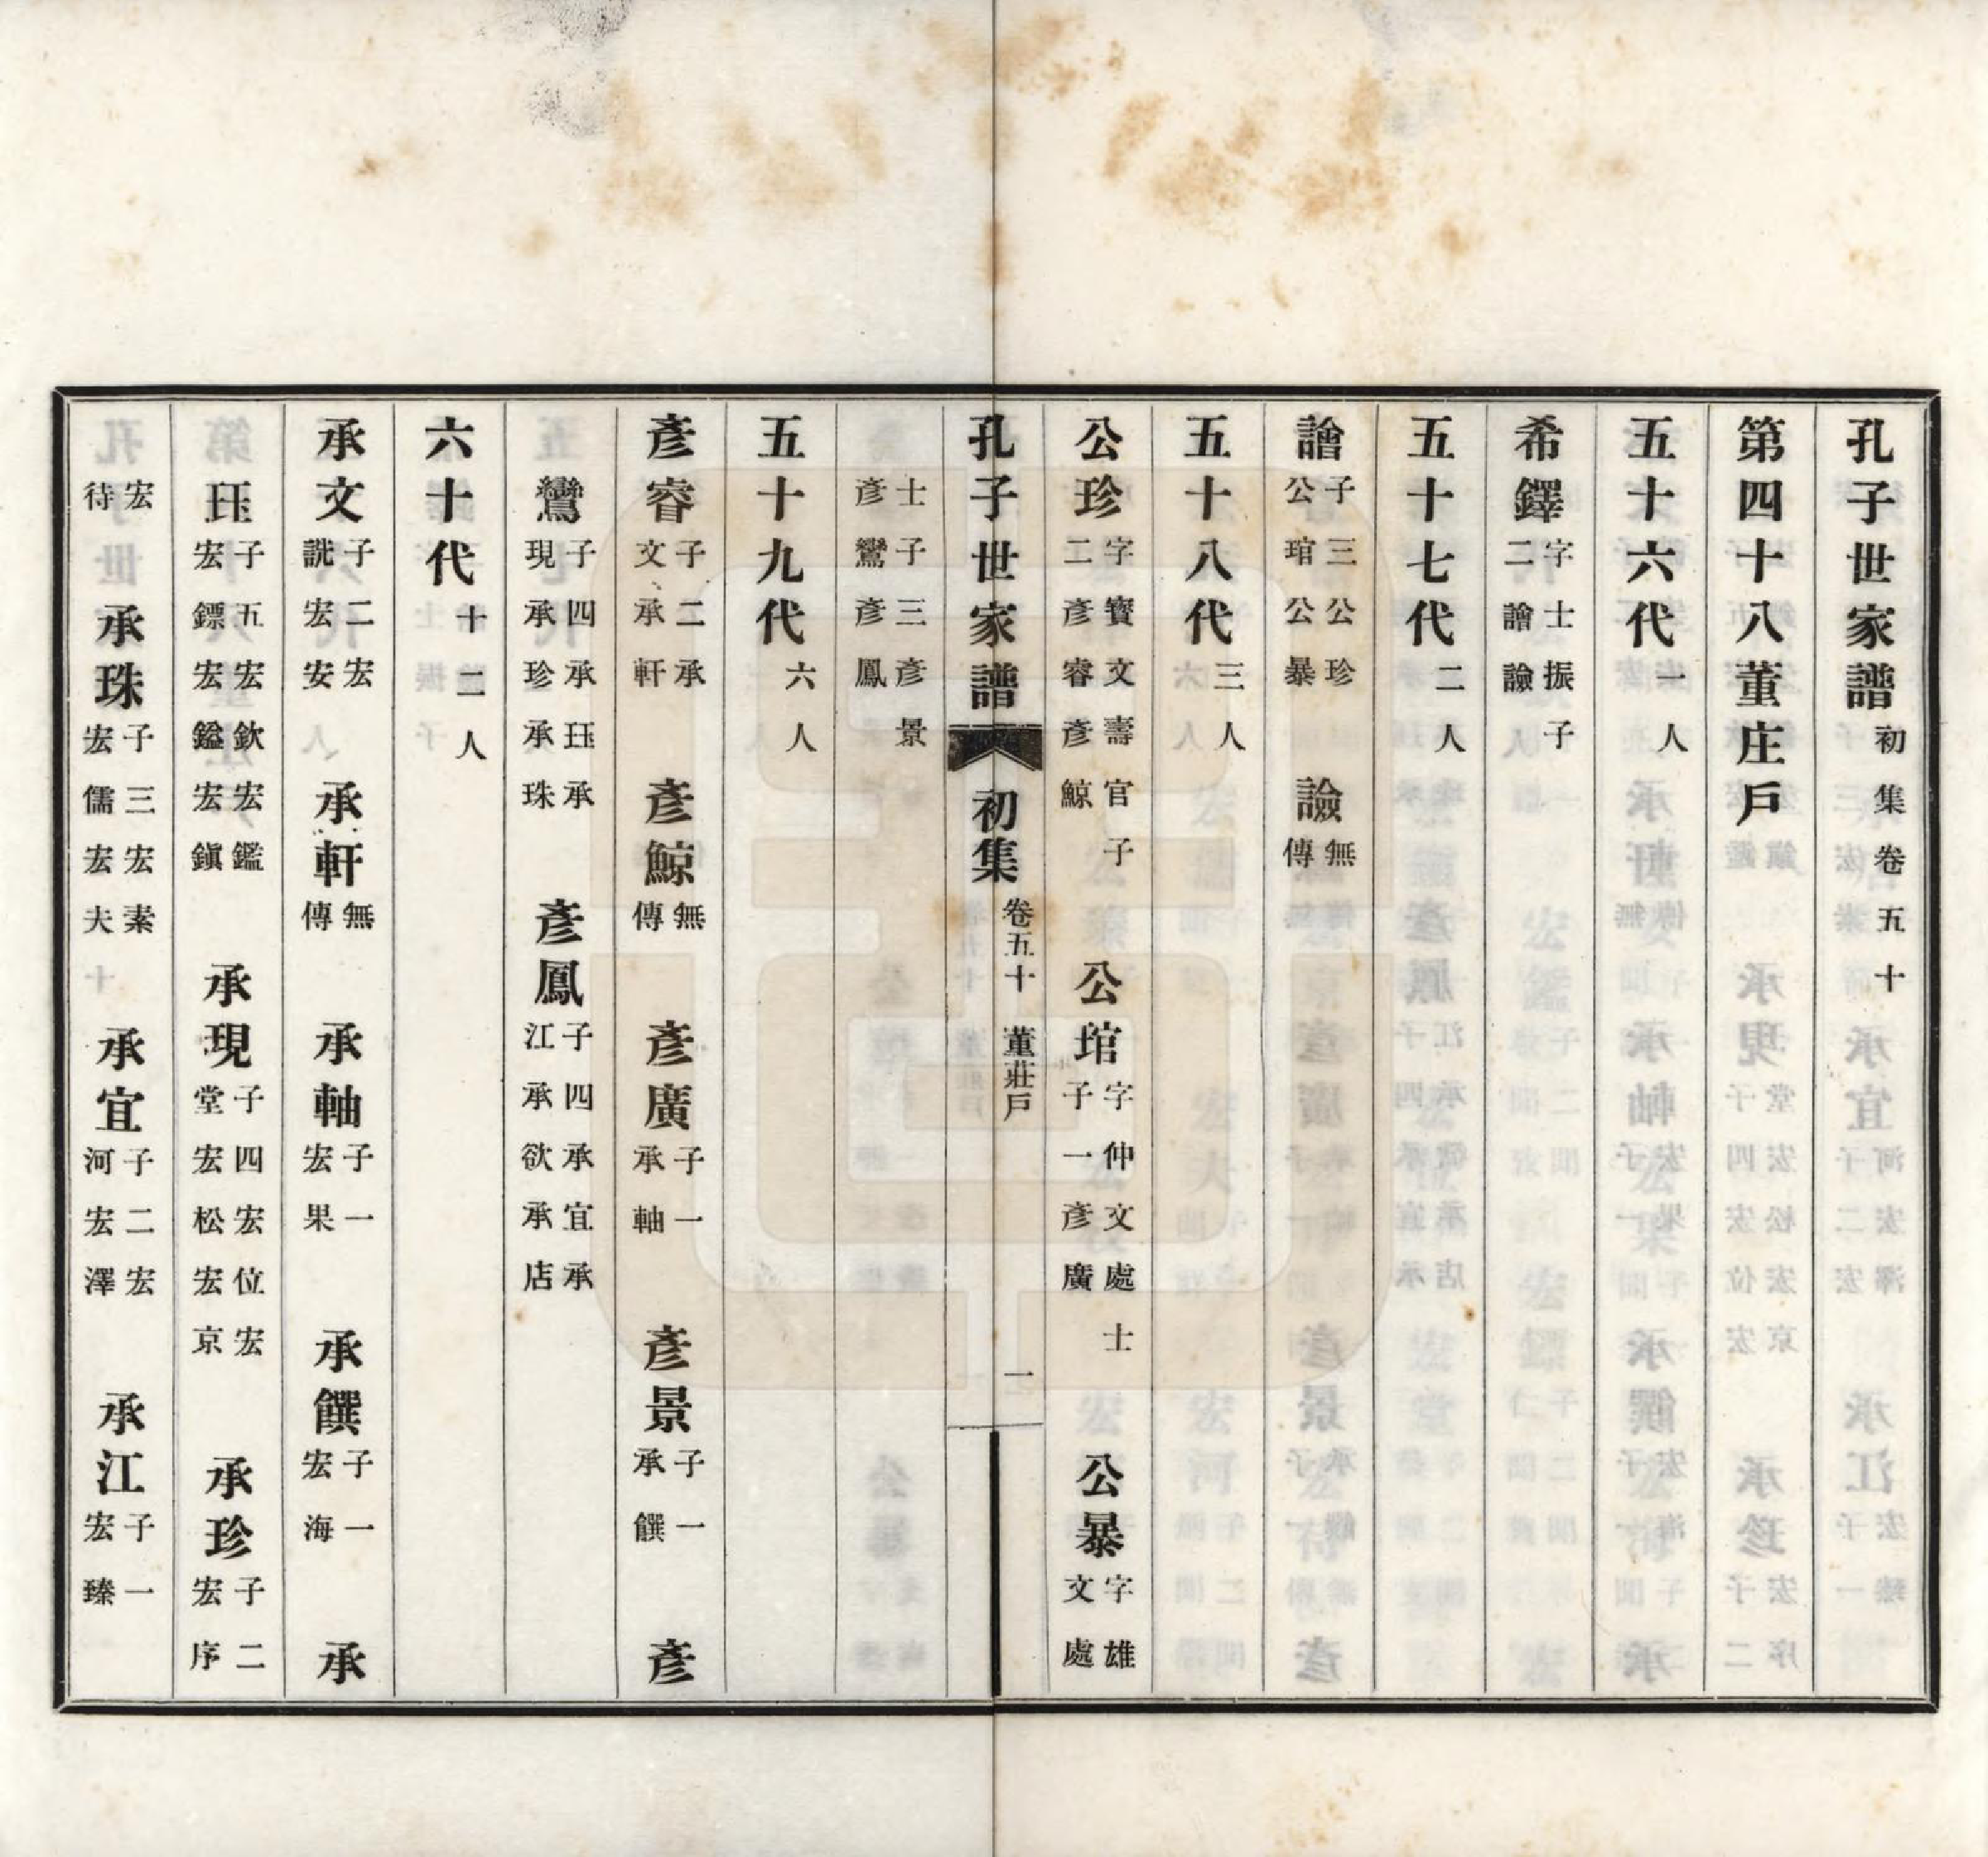 孔子世家譜初集卷五十
第四十八董庄戶
五十六代一人
希鐸字士振子二譮譣
五十七代二人
譮子三公珍公琯公暴　譣無傳
五十八代三人
公珍字寶文壽官子二彥睿彥鯨　公琯字仲文處士子一彥廣　公暴字雄文處
孔子世家譜　初集　卷五十　董莊戶　一
士子三彥景彥鸞彥鳳
五十九代六人
彥睿子二承文承軒　彥鯨無傳　彥廣子一承軸　彥景子一承饌　彥
鸞子四承珏承現承珍承珠　彥鳳子四承宜承江承欲承店
六十代十二人
承文子二宏詵宏安　承軒無傳　承軸子一宏果　承饌子一宏海　承
珏子五宏欽宏鑑宏鏢宏鎰宏鎭　承現子四宏位宏堂宏松宏京　承珍子二宏序
宏待　承珠子三宏素宏儒宏夫　承宜子二宏河宏澤　承江子一宏臻